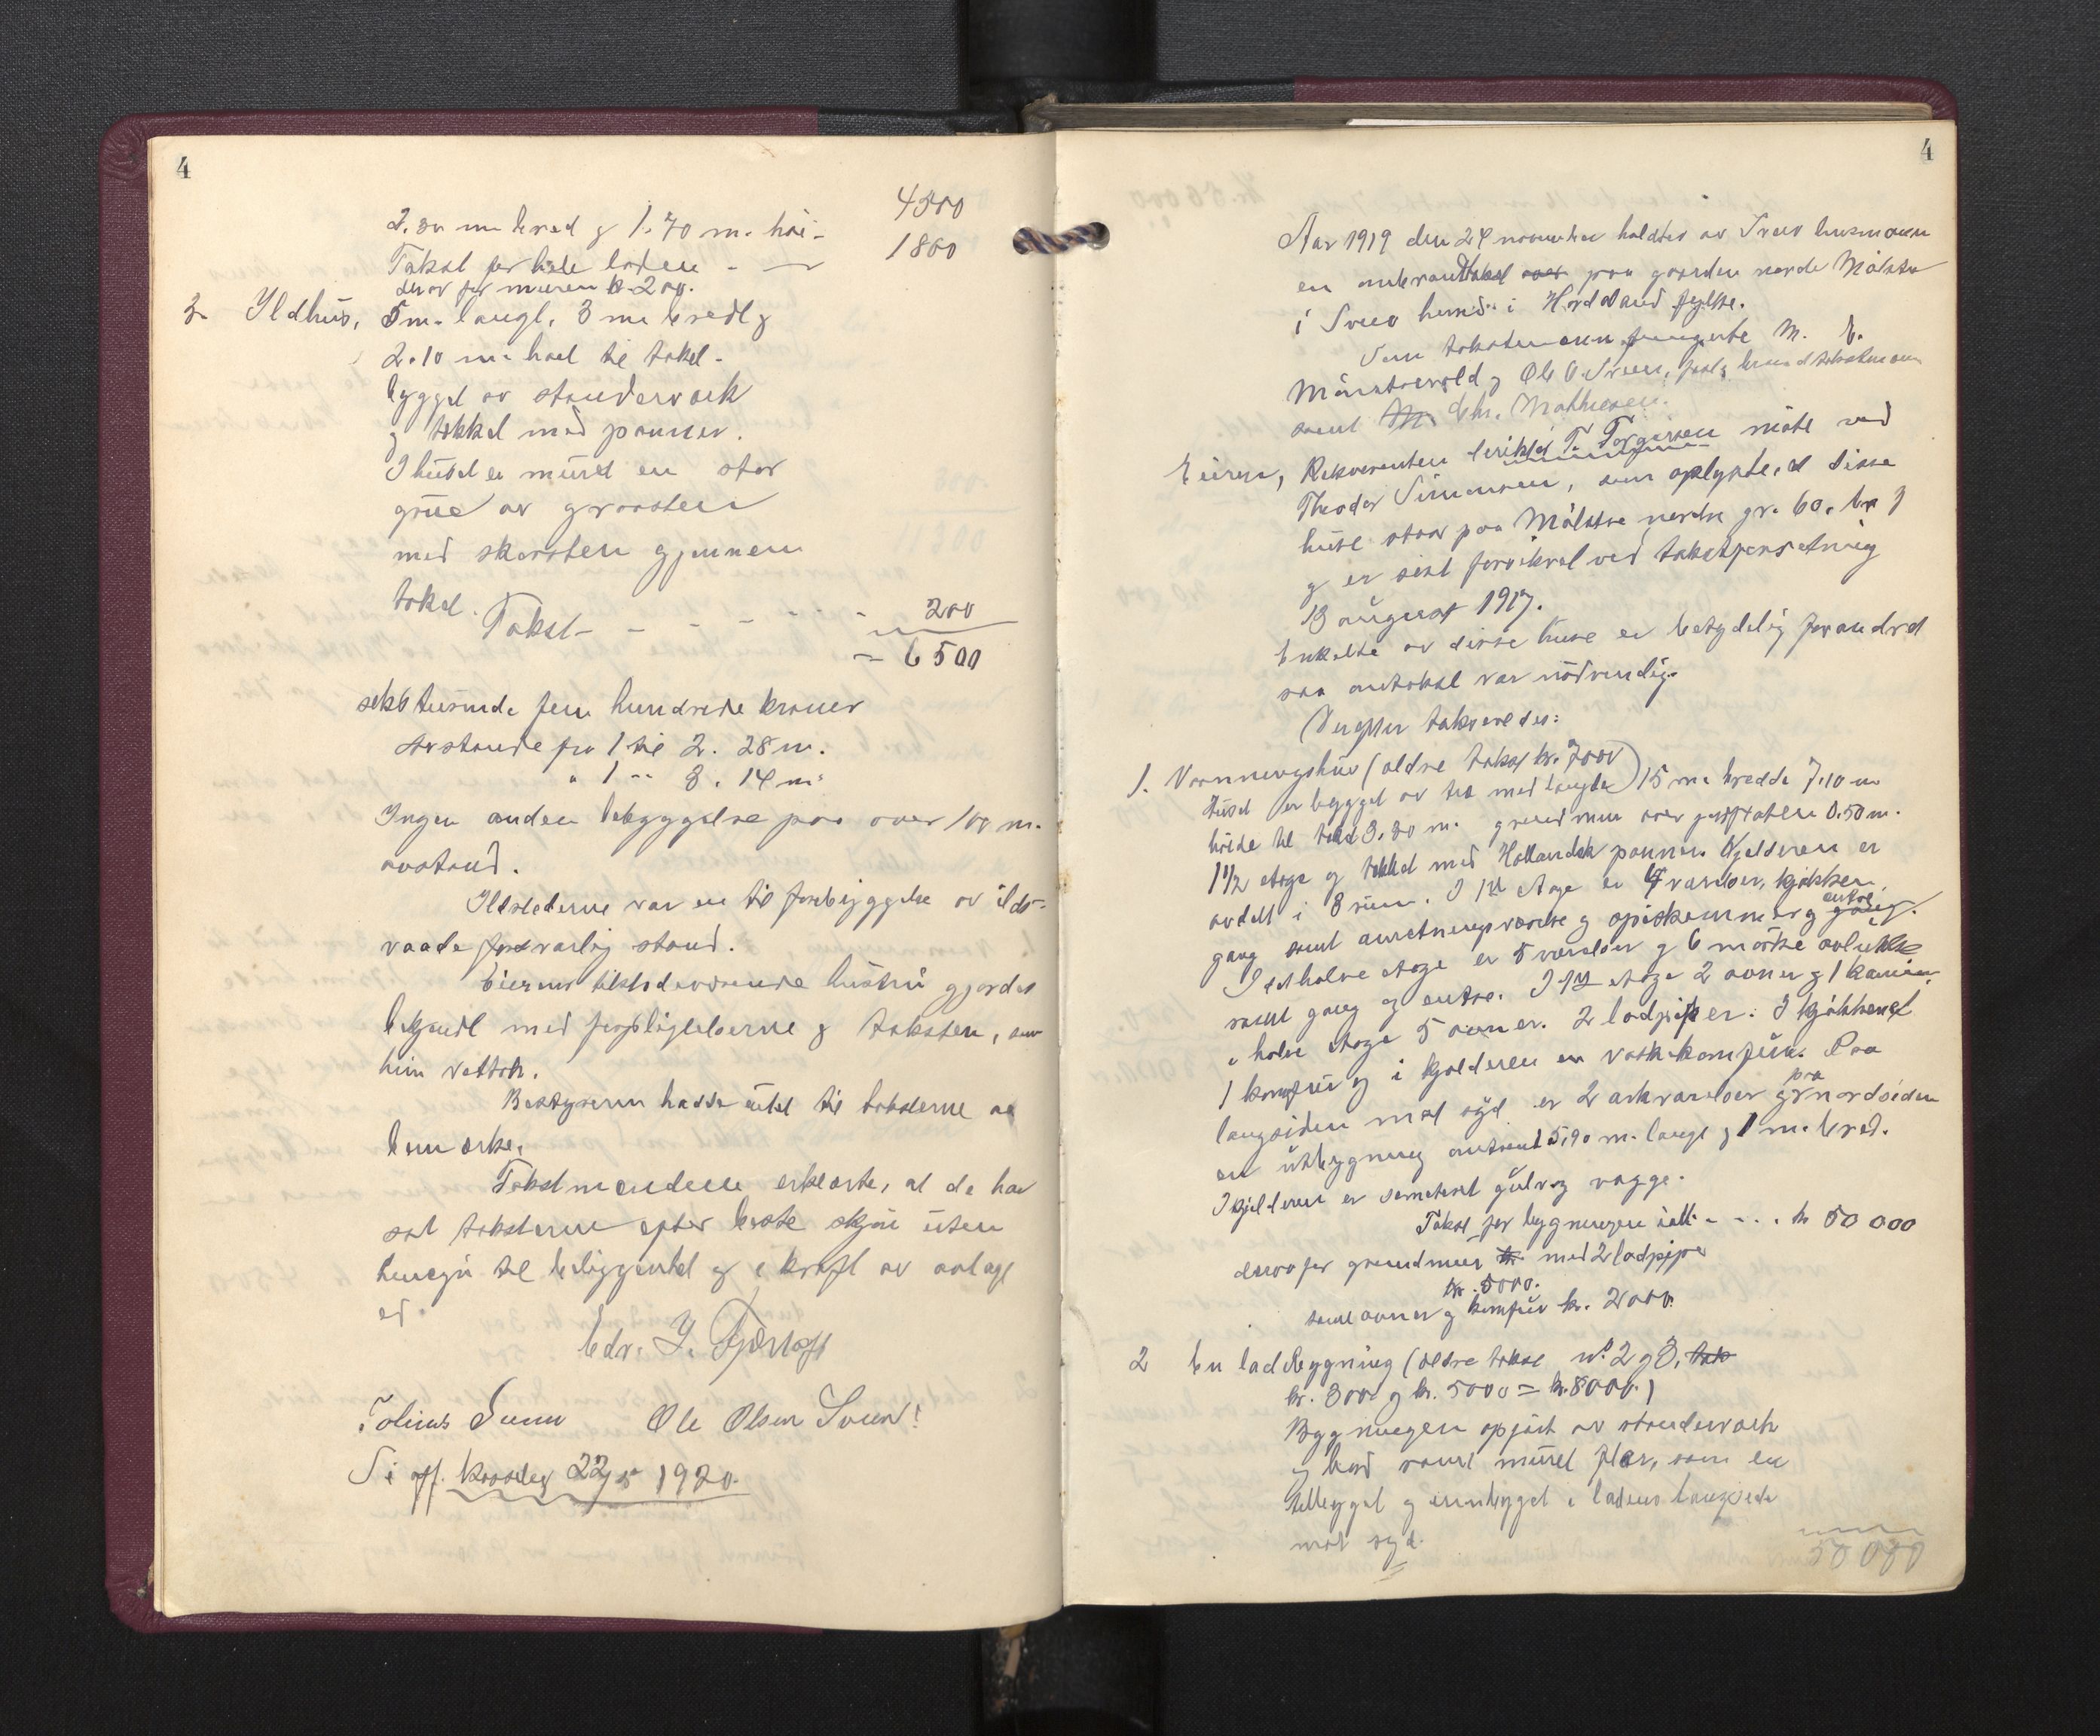 4
4500
2.30 m bred g 1.70 m. høi -
Takst for hele loden - — 1800
derav for muren kr 200.
3. Ildhus, 5 m. langt, 3 m bredt g
2.10 m. høit til taket -
bygget av standerverk
g tekket med panner.
I huset er muret en stor
grue av graasten
med skorsten gjennem
taket.
Takst - - - - - - 200
- 6500
seks tusinde fem hundrede kroner
Avstande fra 1 til 2. 28 m.
" 1 -- 3. 14 m.
Ingen anden bebyggelse paa over 100 m.
avstand.
Ildstederne var en til forebyggelse av ilds-
vaade forsvarlig stand.
Eierens tilstedeværende hustru gjordes
bekjendt med forpligtelserne g taksten, som
hun vedtok.
Bestyreren hadde intet til taksterne at
bemerke.
Takstmændene erklærte, at de har
sat taksterne efter beste skjøn uten
hensyn til beliggenhet g i kraft av avlagt
ed.
Edv. J.
Ole Olsen Sveen
gff. 22/5 1920.
4
Aar 1919 den 24 november holdtes av Sveio lensmann
en omtakst over paa gaarden nordre Målstu
i Sveio herred i Hordaland fylke.
Som takstmænn fungerte M. E.
g Ole O. Sveen,
samt M. Chr. Mathiesen.
Eieren, Rekvirenten T. Torgersen møtte ved
Theodor Simonsen, som oplyste, at disse
huse staar paa Målstre nordre gr. 60. br 1
g er sist forsikret ved takstforretning
13 august 1917.
Enkelte av disse huse er betydelig forandret
saa omtakst var nødvendig.
Derefter takseredes:
1. Vaaningshus (ældre takst kr. 7000)
Huset er bygget av træ med længde 15 m. bredde 7.10 m
høide til taket 3.80 m. grundmur over jordflaten 0.50 m.
1 1/2 etage g tekket med Hollandsk panner. Kjelderen er
avdelt i 8 rum. I 1st etage er 4 værelser, kjøkken,
gang samt anretningsværelse g spiskammer g entre gang.
I det halve etage er 5 værelser g 6 mørke avlukke
samt gang og entre. I 1st etage 2 ovner g 1 kamin
i halve etage 5 ovner. 2 ladpiper. I kjøkkenet
1 komfur g i kjelderen en vaskekomfur. Paa
langsiden mot syd er 2 arkværelser g paa nordsiden
en utbygning omtrent 5,90 m. langt g 1 m. bred.
I kjelderen er sementert gulv og vægge.
Takst for bygningen ialt - - . . kr 50 000
derav for grundmur kr. med 2 ladpiper
kr. 5000.
samt ovner g komfur kr. 2000.
2 En ladebygning (ældre takst nº 2 g 3, tak
kr. 3000 g kr. 5000 = kr. 8000.)
Bygningen opført av standerverk
g bord samt muret flor, som er
tilbygget g innbygget i ladens langside
mot syd.
50 000